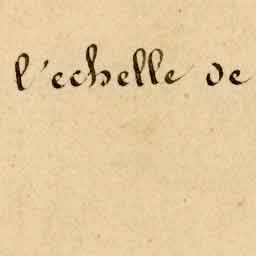 l'echelle de